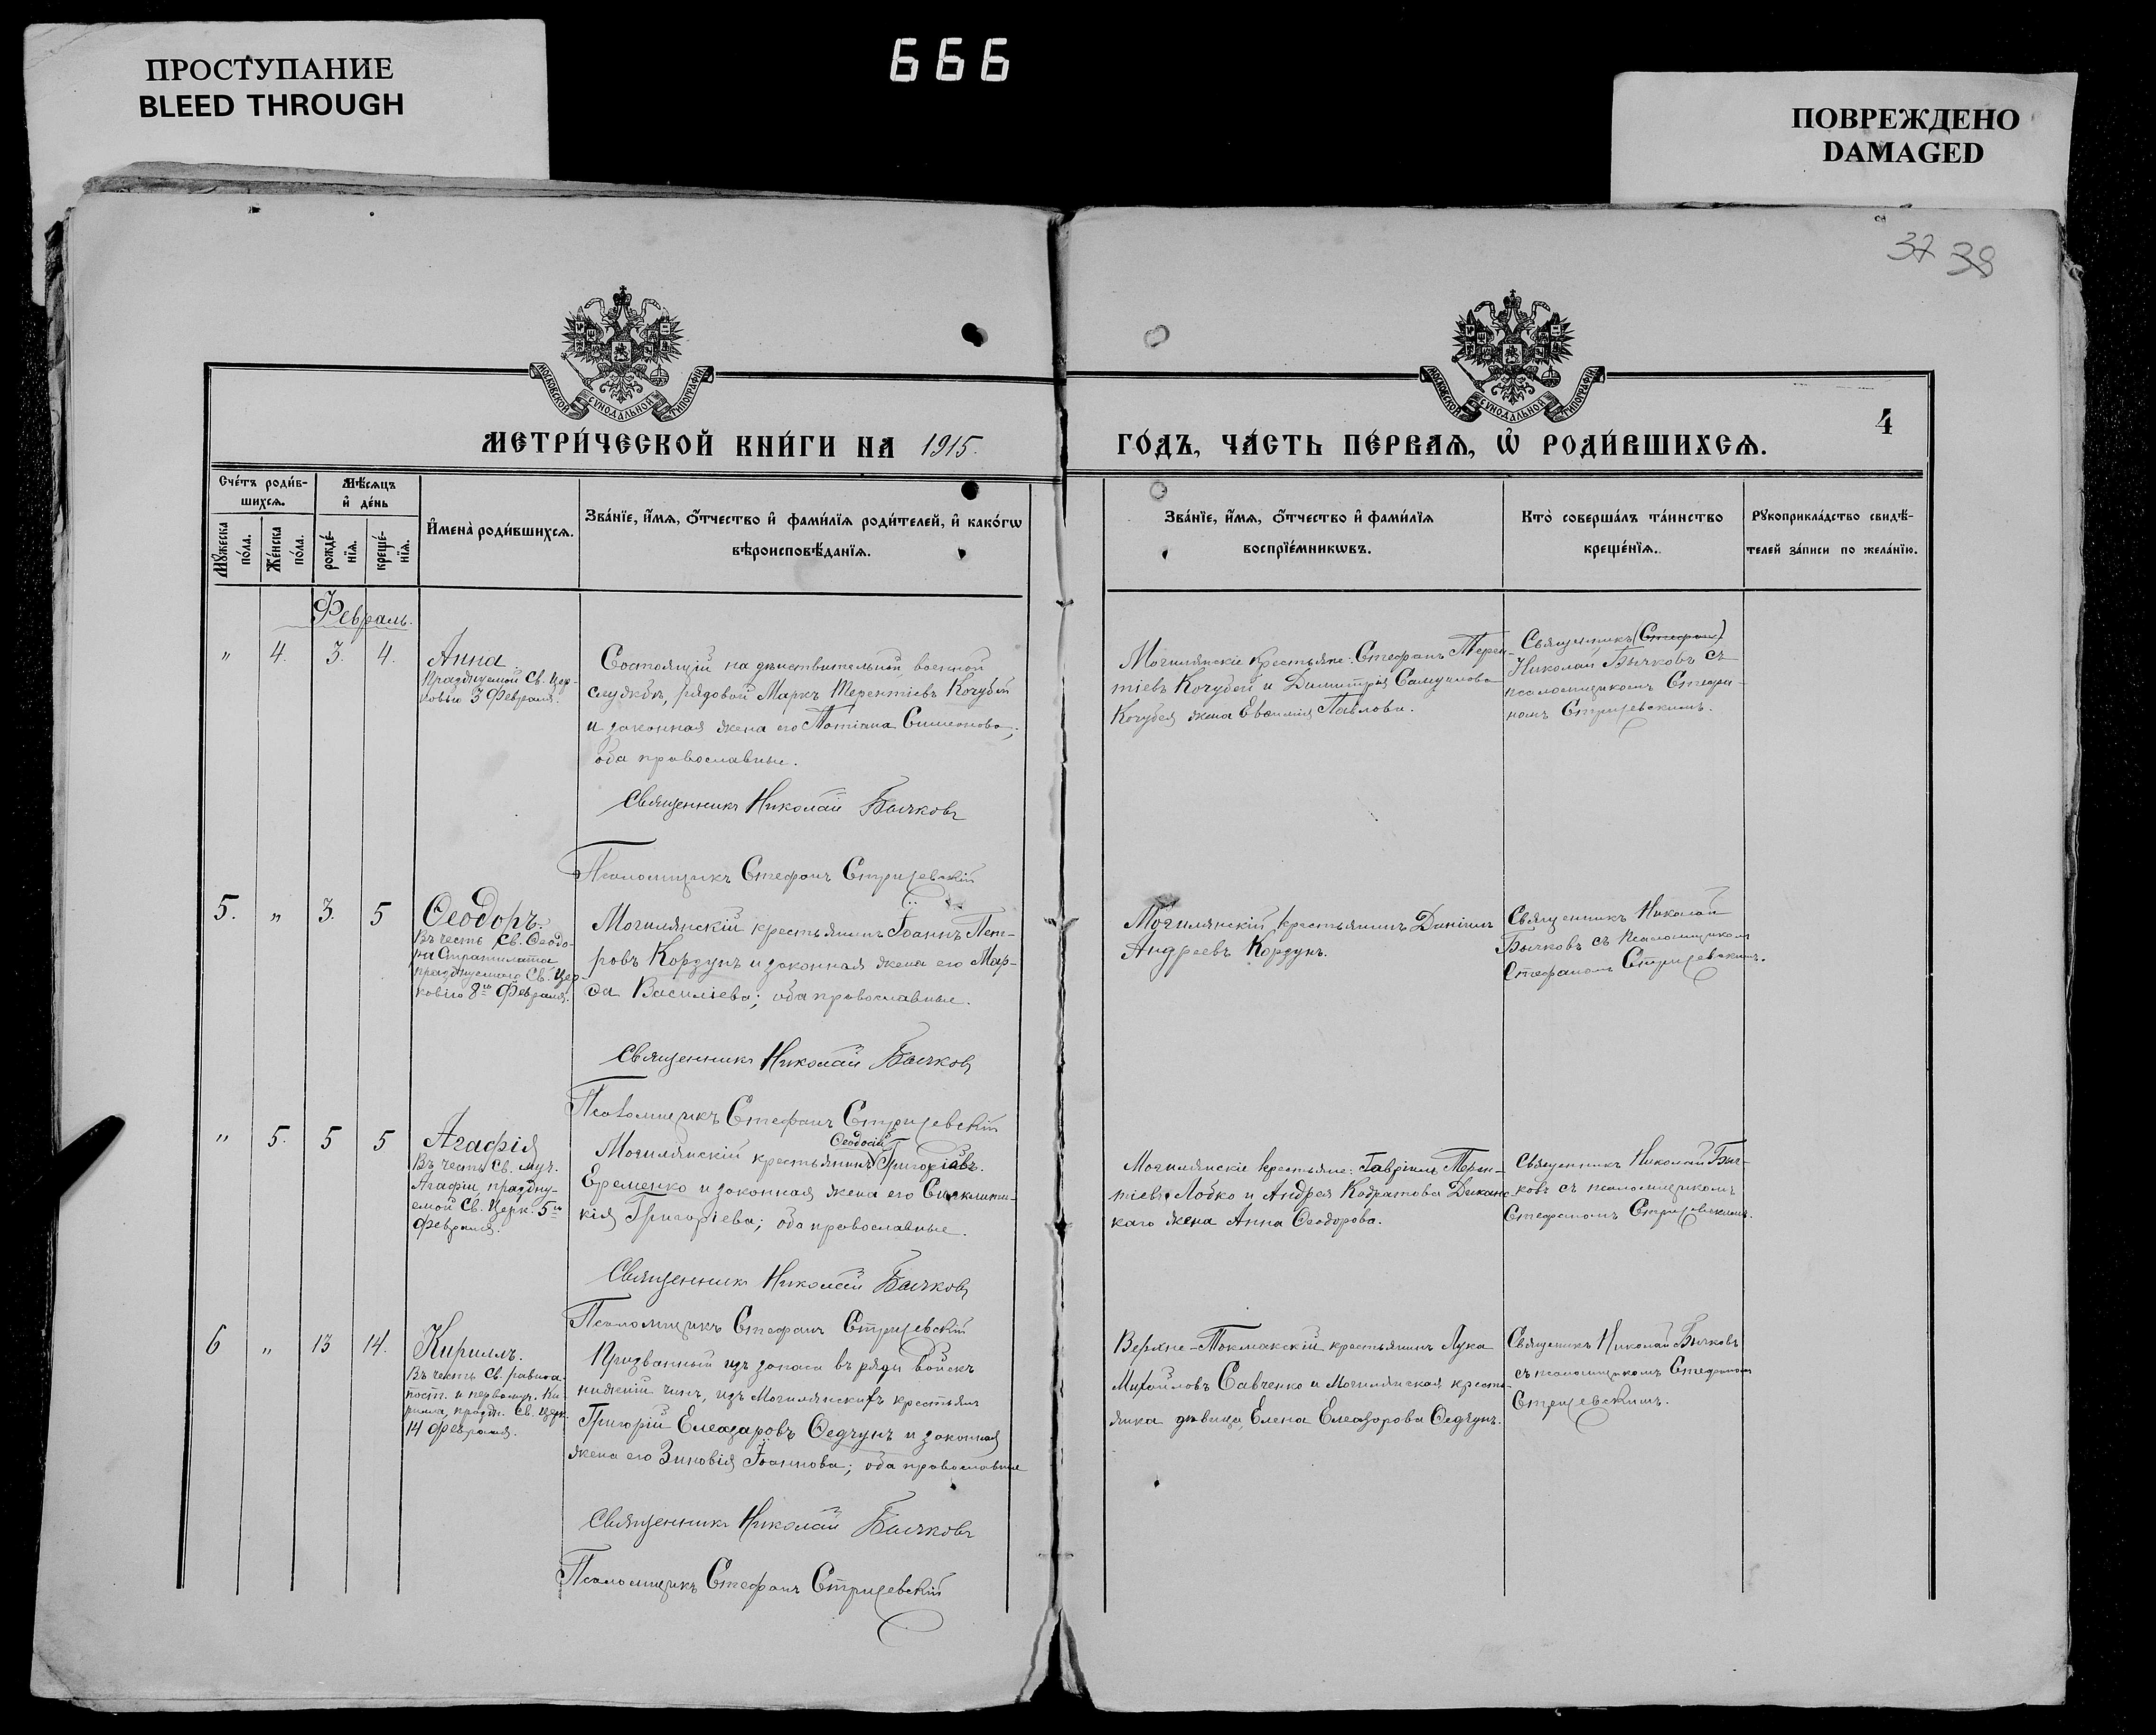 ПРОСТУПАНИЕ
BLEED THROUGH
666
ПОВРЕЖДЕНО
DAMAGED
37 38
МОСКОВСКОЙ СѴНОДАЛЬНОЙ ТИПОГРАФІИ
МОСКОВСКОЙ СѴНОДАЛЬНОЙ ТИПОГРАФІИ
4
МЕТРИ́ЧЕСКОЙ КНИ́ГИ НА 1915.
ГО́ДЪ, ЧА́СТЬ ПЕ́РВАѦ, Ѡ҆ РОДИ́ВШИХСѦ.
Сче́тъ роди́в-
шихсѧ.
Мѣ́сѧцъ
и҆ де́нь
Мꙋ́жеска
по́ла.
Же́нска
по́ла.
рожде́-
нїѧ.
креще́-
нїѧ.
И҆мена̀ роди́вшихсѧ.
Зва́нїе, и҆́мѧ, ѻ҆́тчество и҆ фами́лїѧ роди́телей, и҆ како́гѡ
вѣроисповѣ́данїѧ.
Зва́нїе, и҆́мѧ, ѻ҆́тчество и҆ фами́лїѧ
воспрїе́мникѡвъ.
Кто̀ соверша́лъ та́инство
креще́нїѧ.
Рꙋкоприкла́дство свидѣ́-
телей за́писи по жела́нїю.
Февраль.
" 4. 3. 4.
Анна.
Празднуемой Св. Цер-
ковью 3 Февраля.
Состоящій на дѣйствительной военной
службѣ, рядовой Маркъ Терентіевъ Кочубей
и законная жена его Татіана Симеонова;
оба православные.
Священникъ Николай Бычковъ
Псаломщикъ Стефанъ Стрижевскій
Могилянскіе крестьяне: Стефанъ Терен-
тіевъ Кочубей и Димитрія Самуилова
Кочубея жена Евѳимія Павлова.
Священникъ (Стефан)
Николай Бычковъ съ
псаломщикомъ Стефа-
номъ Стрижевскимъ.
5. " 3. 5
Ѳеодоръ.
Въ честь Св. Ѳеодо-
ра Стратилата
празднуемаго Св. Цер-
ковію 8го Февраля.
Могилянскій крестьянинъ Іоаннъ Пет-
ровъ Кордунъ и законная жена его Мар-
ѳа Василіева; оба православные.
Священникъ Николай Бычковъ
Псаломщикъ Стефанъ Стрижевскій
Могилянскій крестьянинъ Даніилъ
Андреевъ Кордунъ.
Священникъ Николай
Бычковъ съ псаломщикомъ
Стефаномъ Стрижевскимъ.
" 5. 5 5
Агафія
Въ честь Св. муч.
Агафіи праздну-
емой Св. Церк. 5го
Февраля.
Ѳеодосій
Могилянскій крестьянинъ Григоріевъ.
Еременко и законная жена его Синклити-
кія Григоріева; оба православные.
Священникъ Николай Бычковъ
Псаломщикъ Стефанъ Стрижевскій
Могилянскіе крестьяне: Гавріилъ Терен-
тіевъ Лобко и Андрея Кодратова Диканс-
каго жена Анна Ѳеодорова.
Священникъ Николай Быч-
ковъ съ псаломщикомъ
Стефаномъ Стрижевскимъ.
6 " 13 14.
Кириллъ.
Въ честь Св. равноа-
пост. и первоуч. Ки-
рилла, праздн. Св. Церк.
14 Февраля.
Призванный изъ запаса въ ряды войскъ
нижній чинъ, изъ Могилянскихъ крестьянъ
Григорій Елеазаровъ Ѳедчунъ и законная
жена его Зиновія Іоаннова; оба православные
Священникъ Николай Бычковъ
Псаломщикъ Стефанъ Стрижевскій
Верхне-Токмакскій крестьянинъ Лука
Михайловъ Савченко и Могилянская кресть-
янка дѣвица, Елена Елеазорова Ѳедчунъ.
Священникъ Николай Бычковъ
съ псаломщикомъ Стефаномъ
Стрижевскимъ.